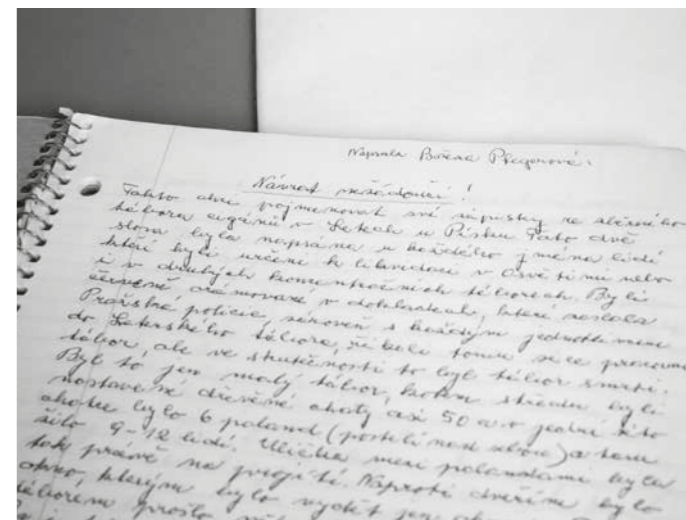 Napsala Božena Pflegerová:
Návrat nežádoucí!
Takto chci pojmenovat své zápisky ze sběrného
tábora cigánů v Letkách u Písku Tato dvě
slova byla napsána u každého jména lidí
kteří byli určeni k likvidaci v Osvětimi nebo
i v druhých koncentračních táborech. Byli
červeně orámované v dokladech, které zaslala
Pražská policie, zároveň s každým jednotlivcem
do Letského tábora, říkali tomu sice pracovní
tábor, ale ve skutečnosti to byl tábor smrti.
Byl to jen malý tábor, kolem středu byli
nastavené dřevěné chaty asi 50 a v jedné této
chatce bylo 6 paland (postelí nad sebou) a tam
žilo 9-12 lidí. Ulička mezi palandami byla
tak právě na projití. Naproti dveřím bylo
okno, kterým bylo vydět jen
táborem prošlo